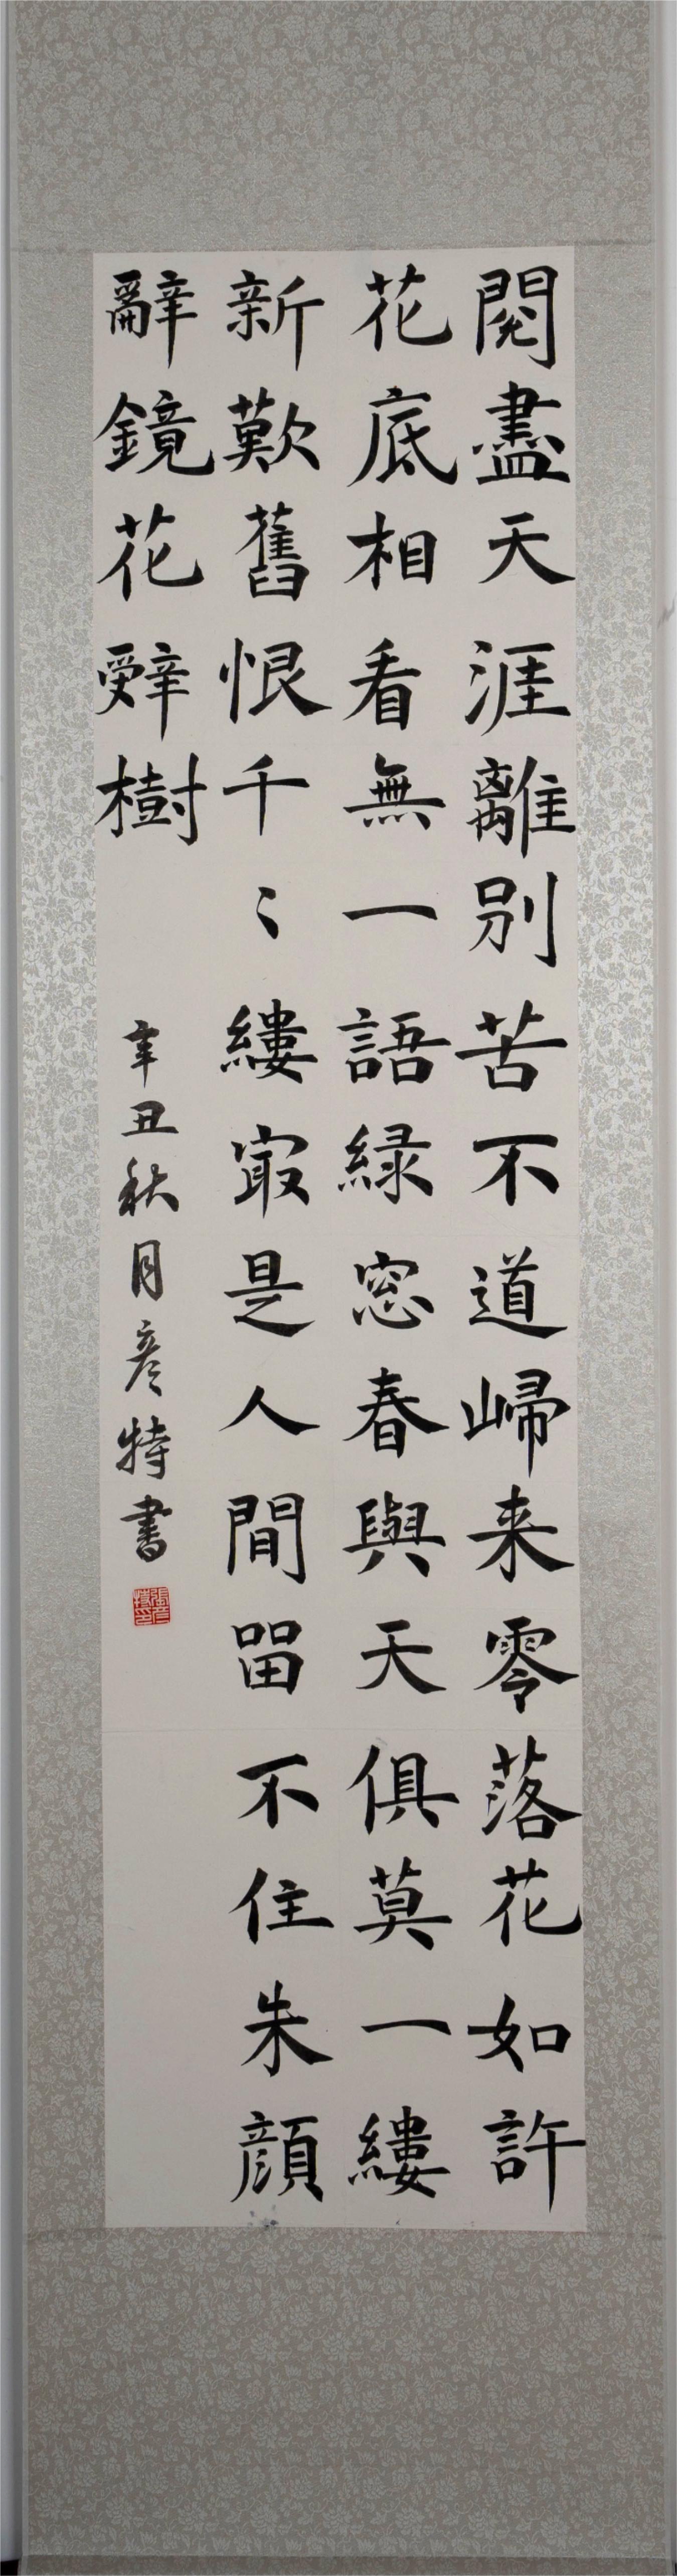 閲盡天涯離别苦不道歸来零落花如許
花底相看無一語緑窓春與天俱莫一縷
新歎舊恨千〻縷冣是人間㽞不住朱顔
辭鏡花辤樹
辛丑秋月彦特書
張彦特印